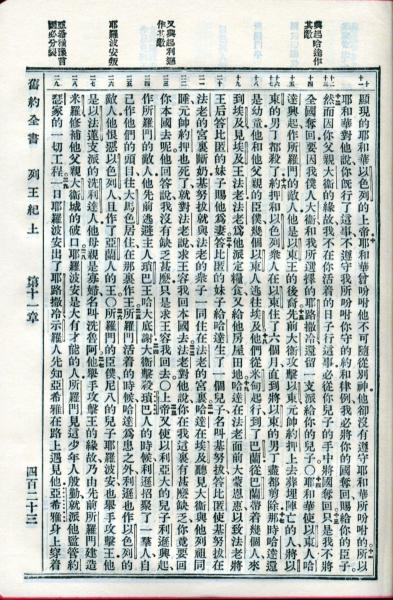 興起哈達作
其敵
又興起利遜
作其敵
耶羅波安叛
亞希雅預言
國必分裂
顯現的耶和華以色列的上帝耶和華曾吩咐他不可隨從別神他卻沒有遵守耶和華所吩咐的所以
耶和華對他說你既行了這事不遵守我所吩咐你守的約和律例我必將你的國奪回賜給你的臣子
然而因你父親大衛的緣故我不在你活着的日子行這事必從你兒子的手中將國奪回只是我不將
全國奪回要因我僕人大衛和我所選擇的耶路撒冷還留一支派給你的兒子○耶和華使以東人哈
達興起作所羅門的敵人他是以東王的後裔先前大衛攻擊以東元帥約押上去葬埋陣亡的人將以
東的男丁都殺了約押和以色列眾人在以東住了六個月直到將以東的男丁盡都剪除那時哈達還
是幼童他和他父親的臣僕幾個以東人逃往埃及他們從米甸起行到了巴蘭從巴蘭帶着幾個人來
到埃及見埃及王法老法老為他派定糧食又給他房屋田地哈達在法老面前大蒙恩惠以致法老將
王后答比匿的妹子賜他為妻答比匿的妹子給哈達生了一個兒子名叫基努拔答比匿使基努拔在
法老的宮裏斷奶基努拔就與法老的眾子一同住在法老的宮裏哈達在埃及聽見大衛與他列祖同
睡元帥約押也死了就對法老說求王容我回本國去法老對他說你在我這裏有甚麼缺乏你竟要回
你本國去呢他回答說我沒有缺乏甚麼只是求王容我回去○上帝又使以利亞大的兒子利遜興起
作所羅門的敵人他先前逃避主人瑣巴王哈大底謝大衛擊殺瑣巴人的時候利遜招聚了一羣人自
己作他們的頭目往大馬色居住在那裏作王所羅門活着的時候哈達為患之外利遜也作以色列的
敵人他恨惡以色列人且作了亞蘭人的王○所羅門的臣僕尼八的兒子耶羅波安也舉手攻擊王他
是以法蓮支派的洗利達人他母親是寡婦名叫洗魯阿他舉手攻擊王的緣故乃由先前所羅門建造
米羅修補他父親大衛城的破口耶羅波安是大有才能的人所羅門見這少年人殷勤就派他監管約
瑟家的一切工程一日耶羅波安出了耶路撒冷示羅人先知亞希雅在路上遇見他亞希雅身上穿着
舊約全書 列王紀上 第十一章 四百二十三